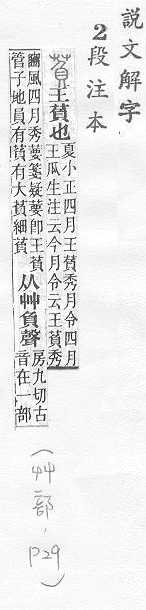 說文解字
2段注本
萯 王萯也
夏小正四月王萯秀月令四月
王瓜生注云今月令云王萯秀
豳風四月秀葽箋疑葽卽王萯
管子地員有萯有大萯細萯
从艸負聲
房九切古
音在一部
(艸部, p29)